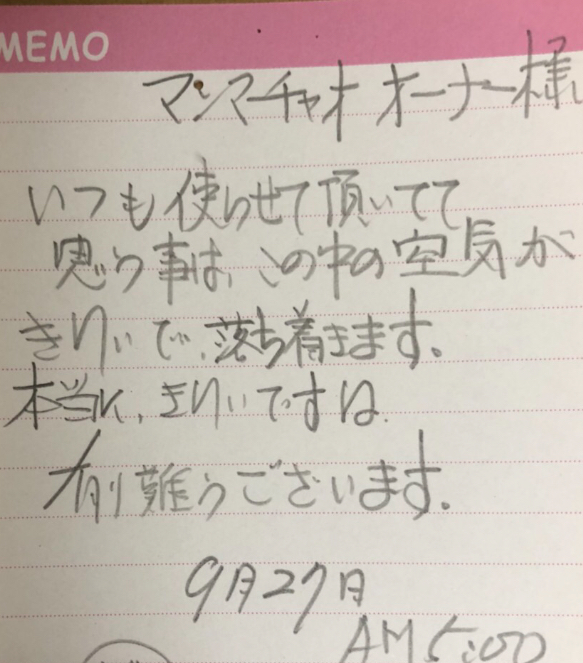 MEMO
マンマチャオ オーナー様
いつも使らせて頂いてて
思う事は、この中の空気が
きれいで、落ち着きます。
本当に、きれいですね
有難うございます。
9月27日
AM 5:00